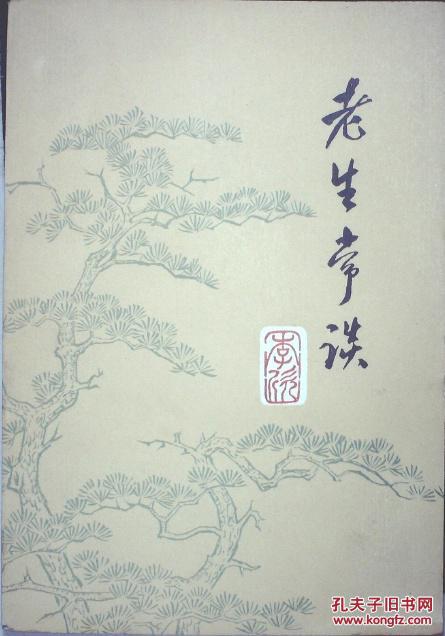 老生常谈
李欣
孔夫子旧书网
www.kongfz.com